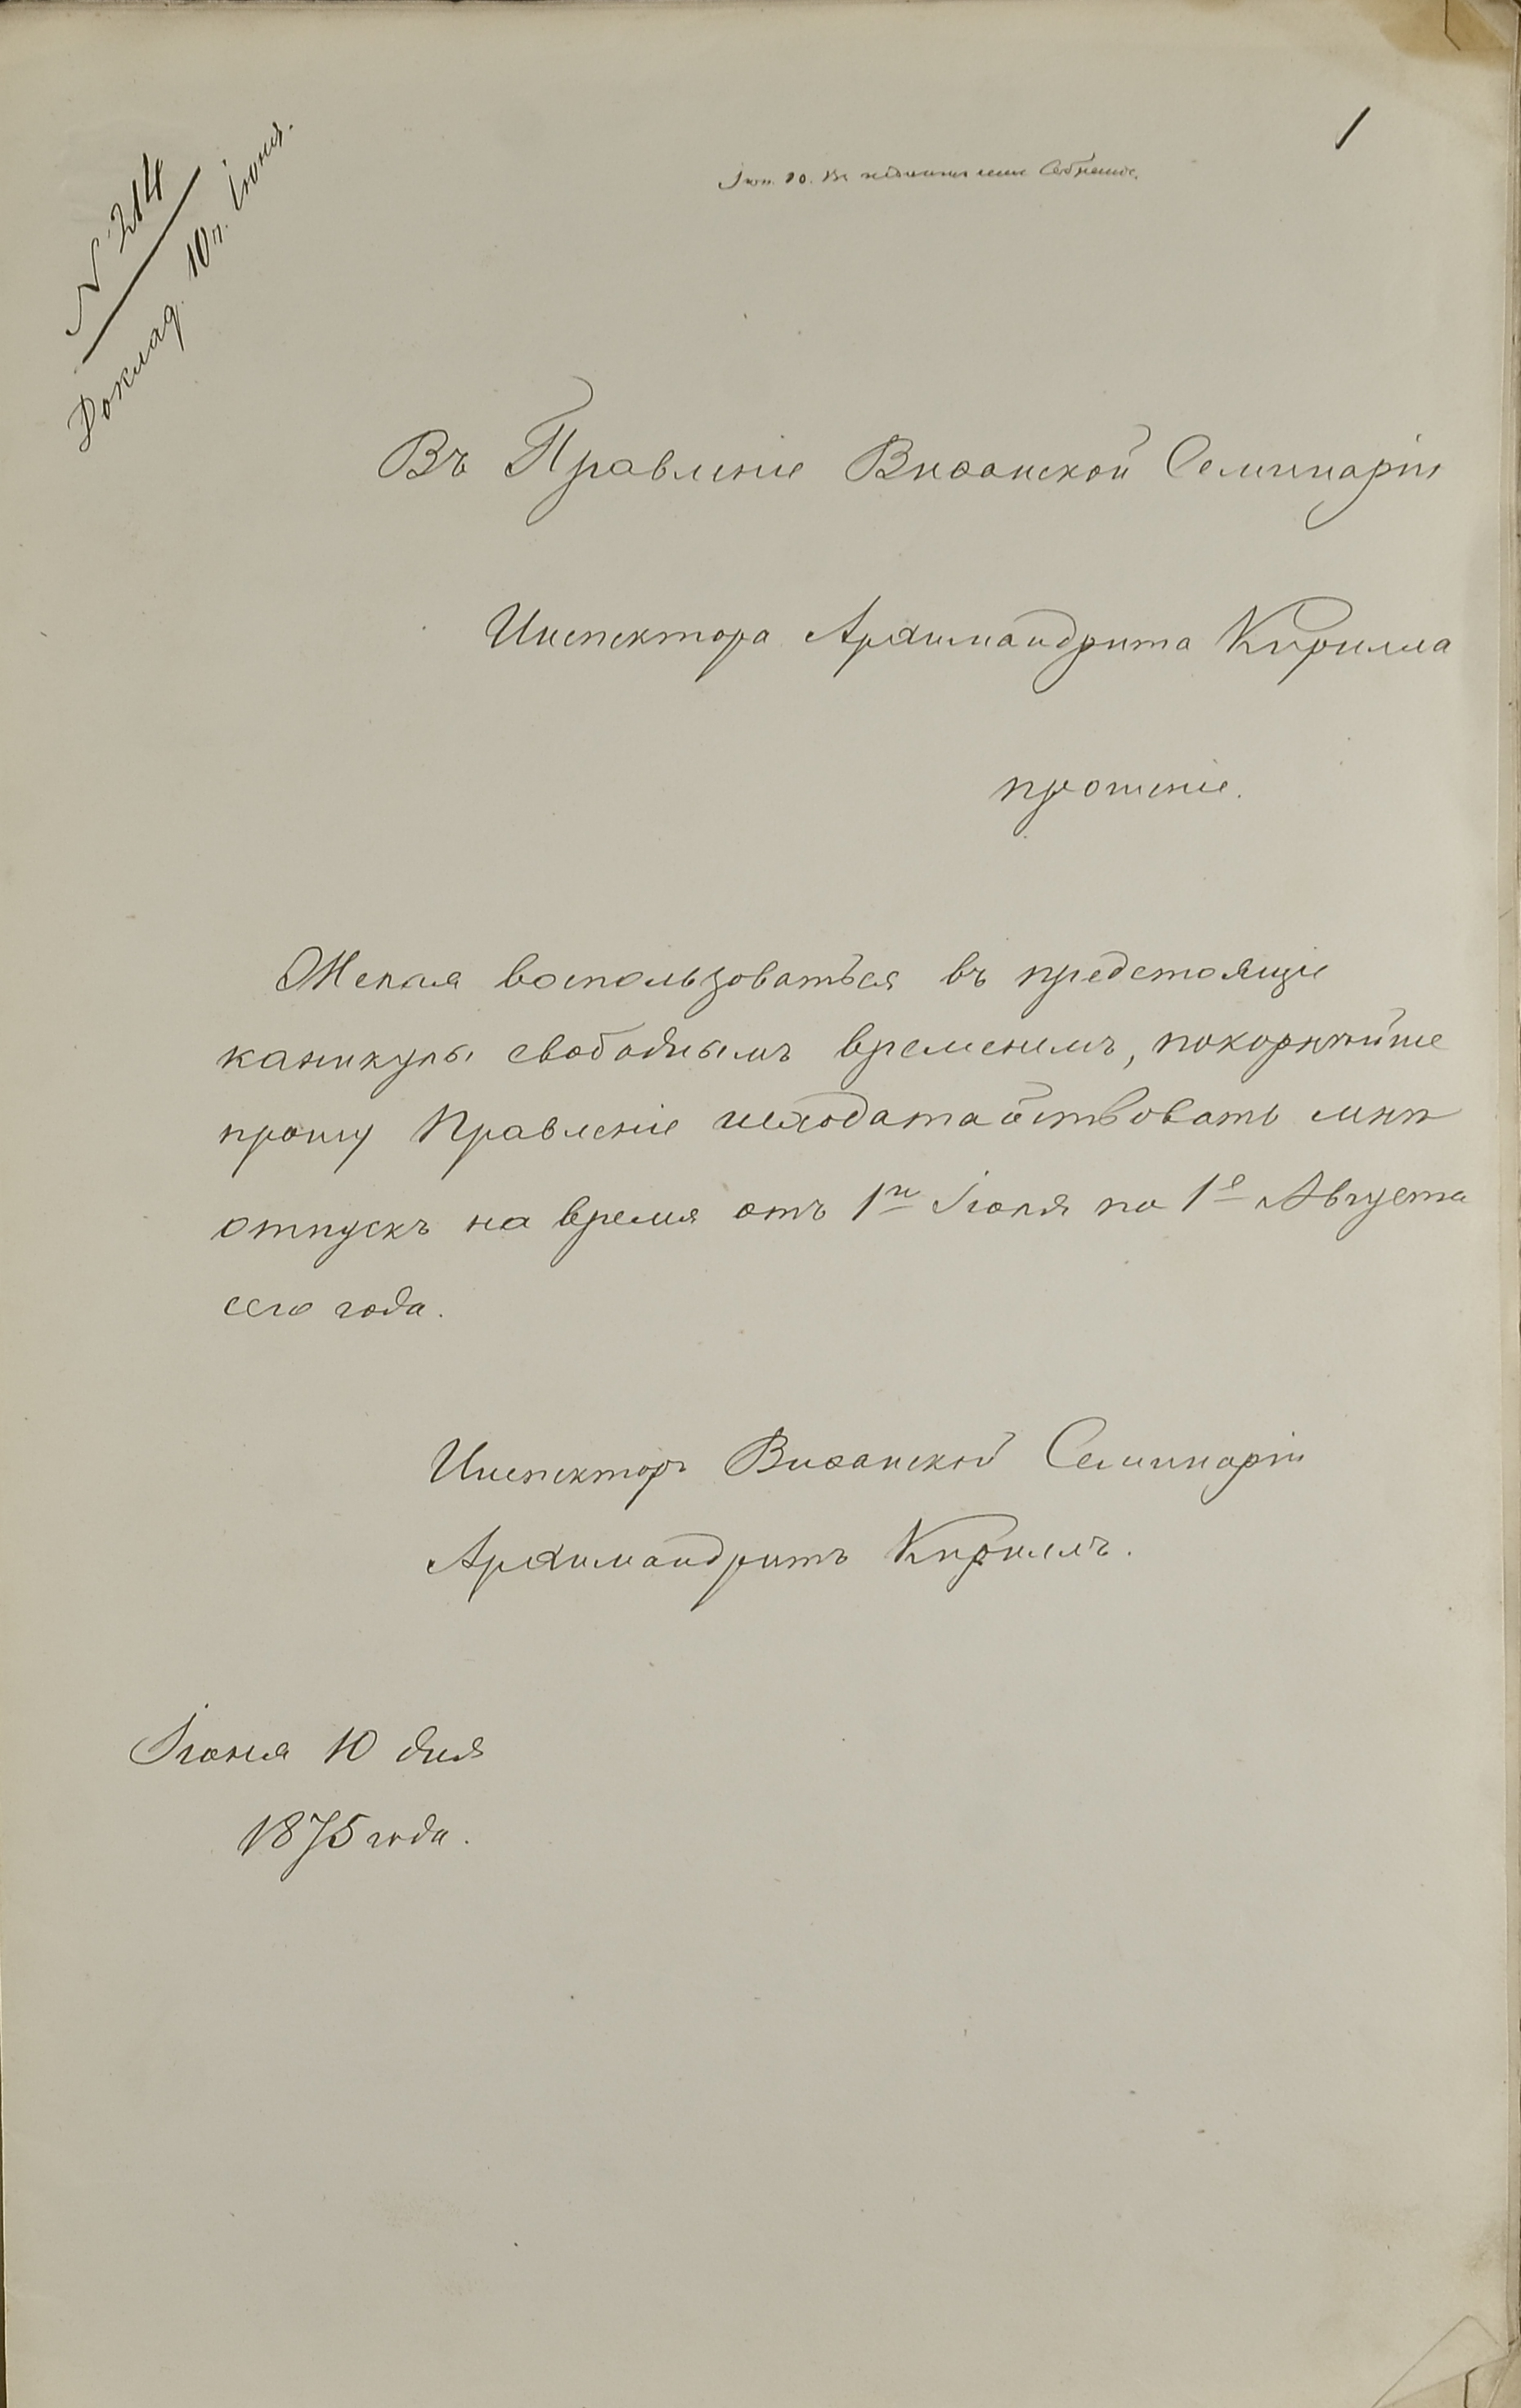 1
Іюн. 10. Въ
N 214
Доклад. 10 Іюня.
Въ Правленіе Виѳанской Семинаріи
Инспектора Архимандрита Кирилла
прошеніе.
Желая воспользоваться въ предстоящіе
каникулы свободнымъ временемъ, покорнѣйше
прошу Правленіе исходатайствовать мнѣ
отпускъ на время отъ 1го Іюля по 1е Августа
сего года.
Инспекторъ Виѳанской Семинаріи
Архимандритъ Кириллъ.
Іюня 10 дня
1875 года.